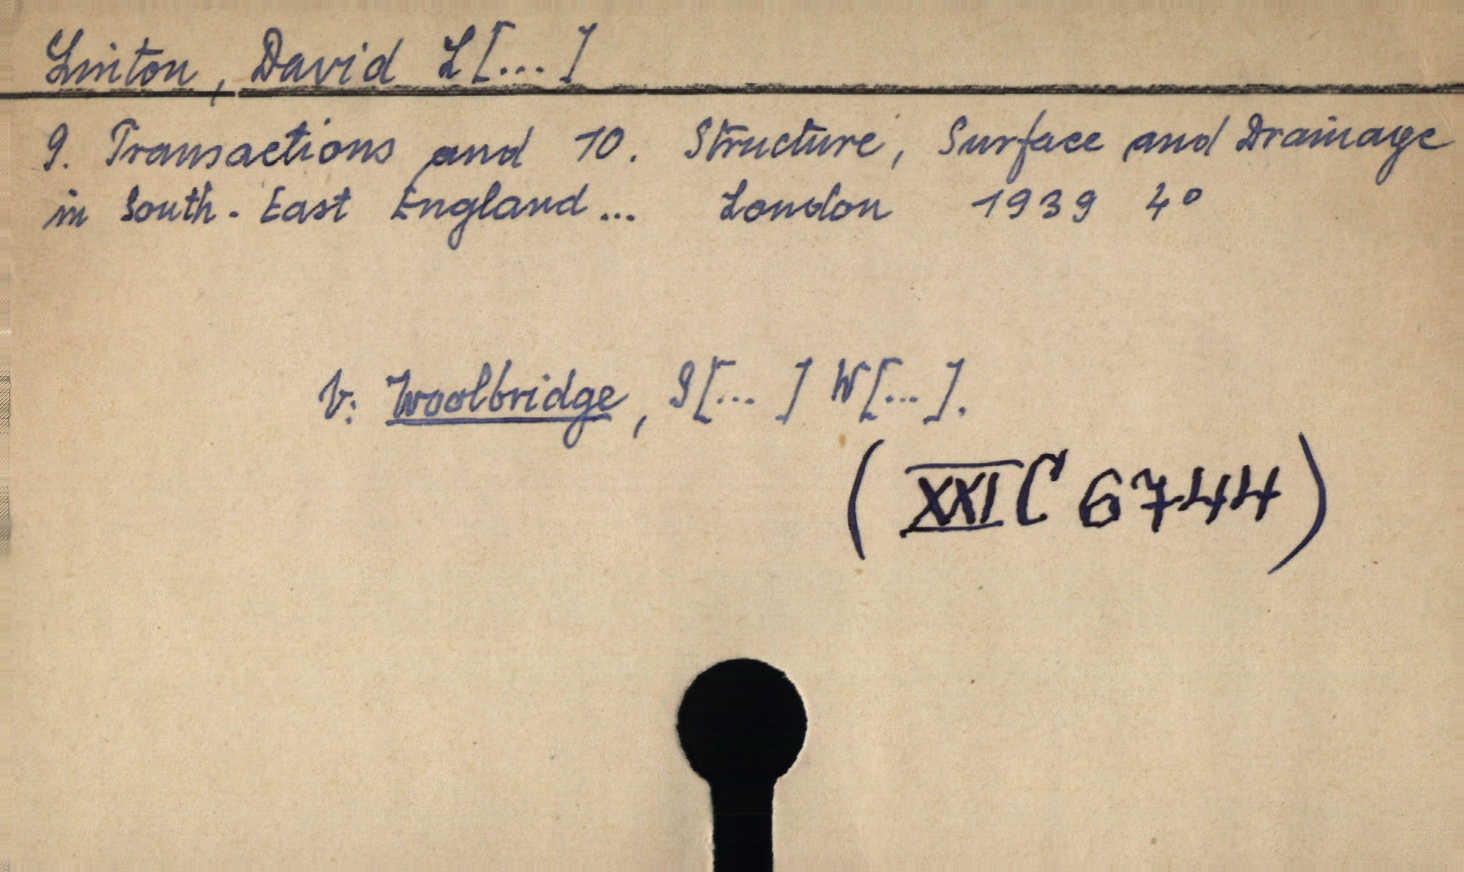 Linton, David L[...]
9. Transactions and 10. Structure, Surface and Drainage
in South-East England... London 1939 4°
V: Woolbridge, S[...] W[...].
(XXI C 6744)